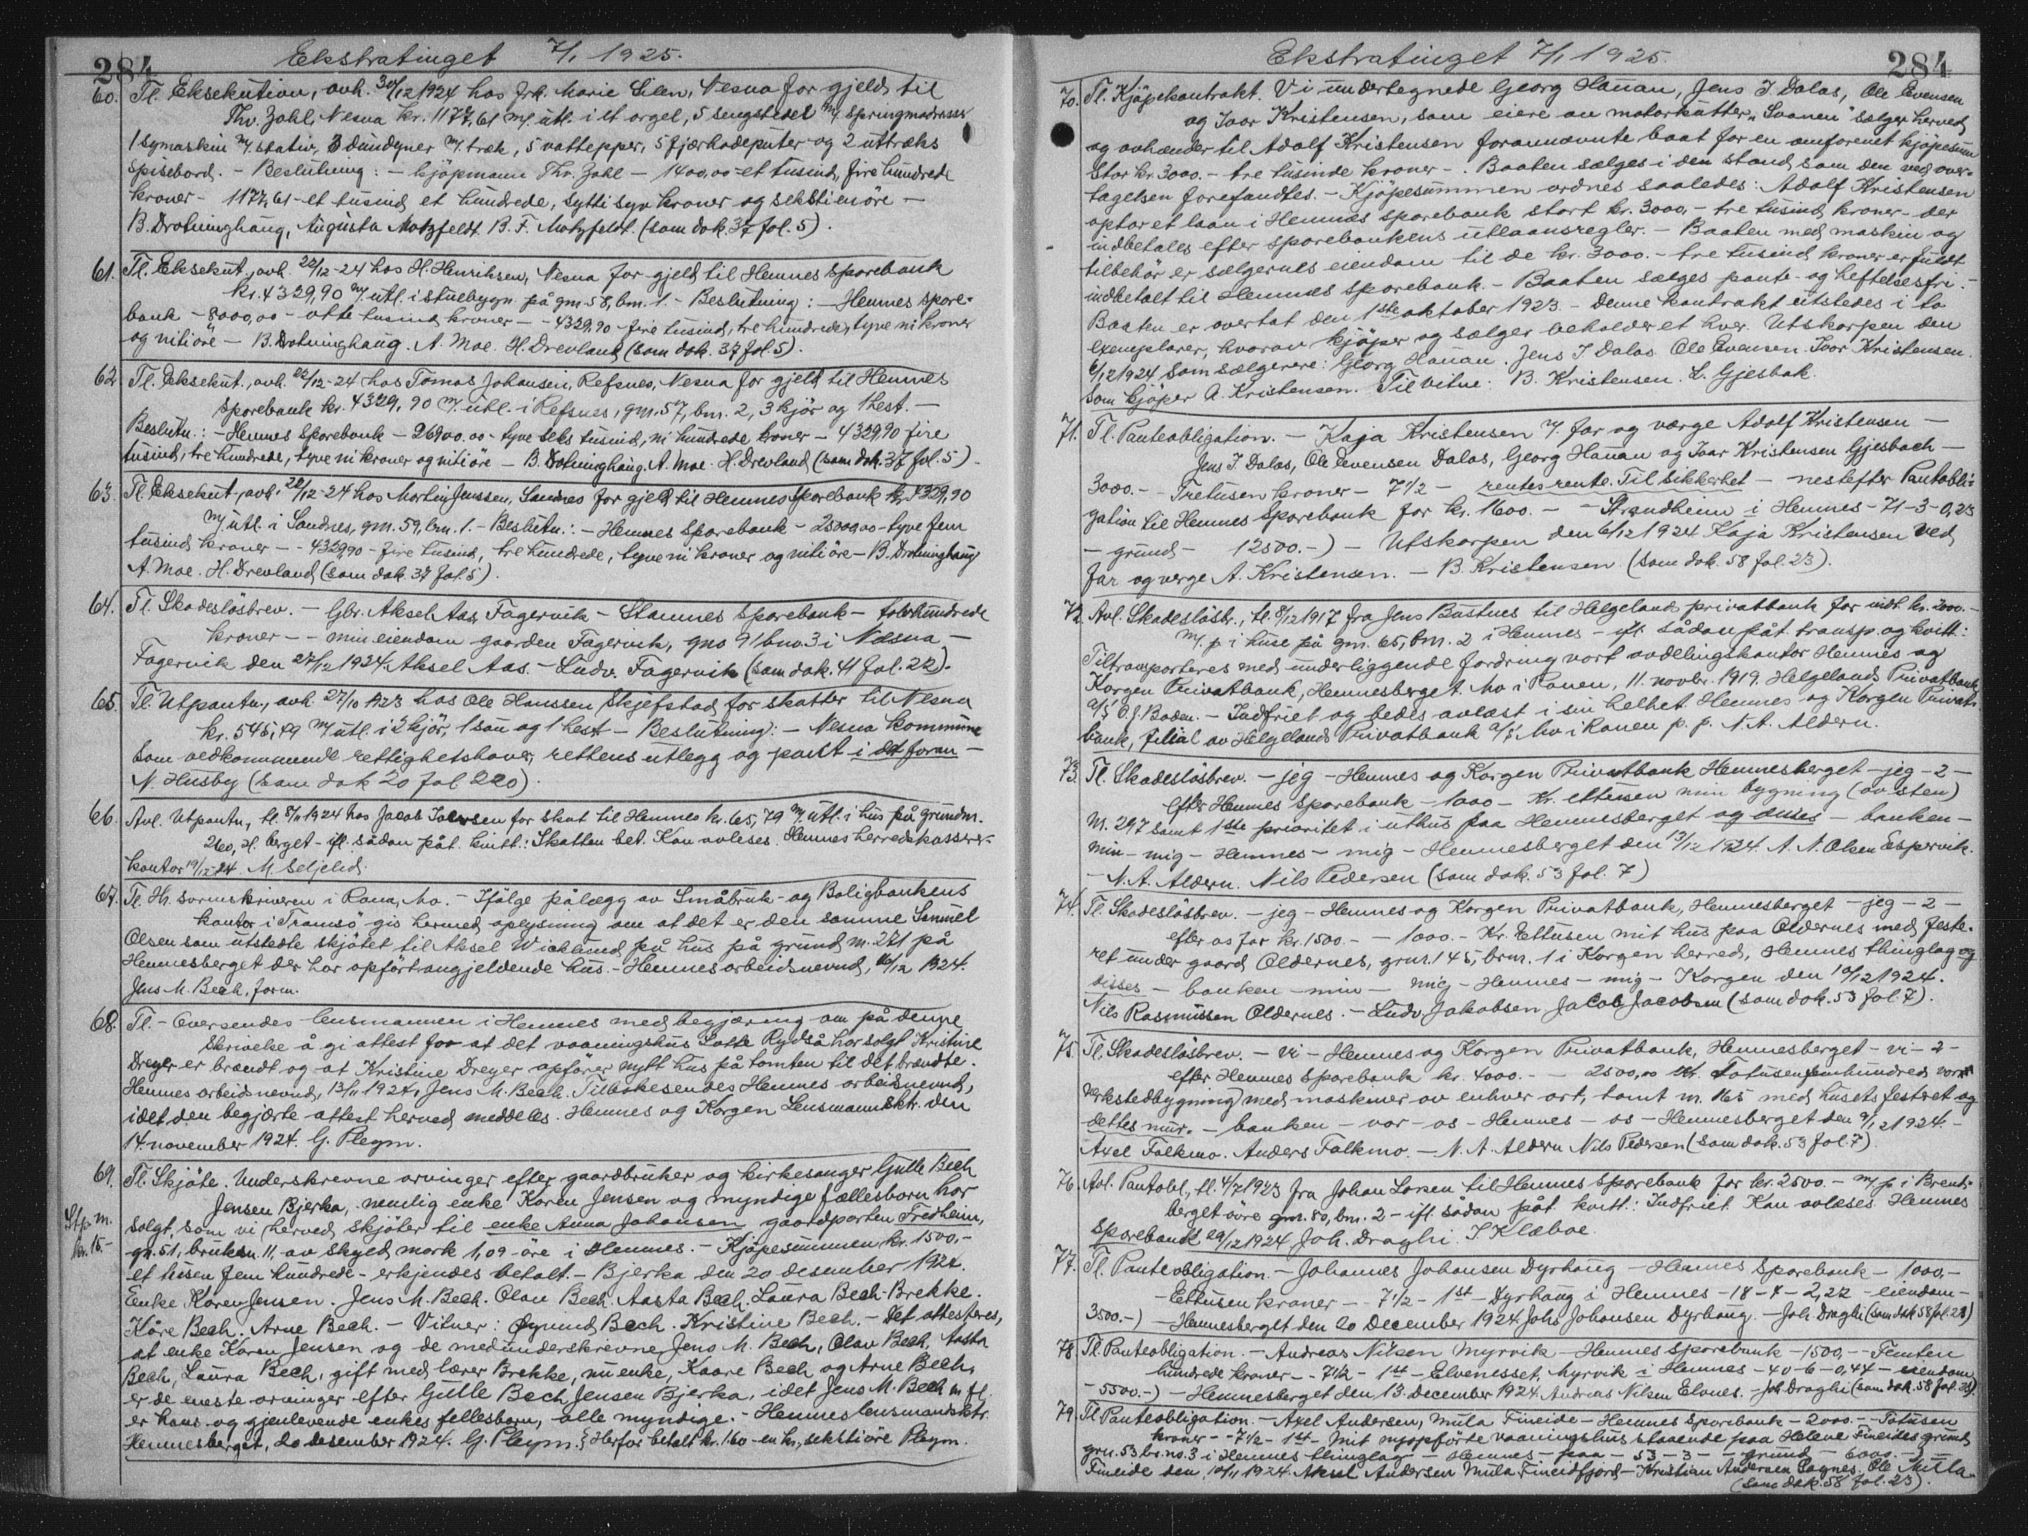 284 Ekstratinget 7/1 1925.
60. Tl. Eksekution, avh. 30/12 1924 hos frk. Marie Eilen, Nesna for gjeld til
Thv. Zahl, Nesna kr. 1177,61 m/ utl. i et orgel, 5 sengesteder m/ springmadrasser
1 symaskin m/ stativ, 3 dundyner m/ træk, 5 vattepper, 5 fjærhodeputer og 2 uttræks
spisebord. - Beslutning: - kjöpmann Thv. Zahl - 1400,00 - et tusind fire hundrede
kroner - 1177,61 - et tusind et hundrede, sytti syv kroner og sekstien öre -
B. Drotninghaug, Augusta Motzfeldt B. F. Motzfeldt. (som dok. 37 fol. 5).
61. Tl. Eksekut., avh. 22/12-24 hos H. Henriksen, Nesna for gjeld til Hemnes sparebank
kr. 4329,90 m/ utl. i stuebygn. på gm. 58, bm. 1. - Beslutning: - Hemnes spare-
bank - 8000,00 - otte tusind kroner - - 4329,90 - fire tusind, tre hundrede, tyve ni kroner
og nitiöre - B. Drotninghaug. A. Moe. H. Drevland (som dok. 37 fol. 5).
62. Tl. Eksekut., avh. 22/12-24 hos Tomas Johansen, Refsnes, Nesna for gjeld til Hemnes
sparebank kr. 4329,90 m/ utl. i Refsnes, gm. 57, bm. 2, 3 kjör og 1 hest. -
Beslutn.: - Hemnes Sparebank - 26900.00 - tyve seks tusind, ni hundrede kroner - 4329,90 fire
tusind, tre hundrede, tyve ni kroner og nitiöre - B. Drotninghaug. A. Moe. H. Drevland (som dok. 37 fol. 5).
63. Tl. Eksekut., avh. 22/12-24 hos Martin Jenssen, Sandnes for gjeld til Hemnes Sparebank kr. 4329,90
m/ utl. i Sandnes, gm. 59, bm. 1. - Beslutn.: - Hemnes Sparebank - 25000,00 - tyve fem
tusind kroner - - 4329,90 - fire tusind, tre hundrede, tyve ni kroner og nitiöre - B. Drotninghaug
A. Moe. H. Drevland (som dok. 37 fol. 5).
64. Tl. Skadeslösbrev. - Gbr. Aksel Aas, Fagervik - Stamnes sparebank - tolvhundrede
kroner - - min eiendom gaarden Fagervik, gno 91 bno. 3 i Nesna -
Fagervik den 27/12 1924. Aksel Aas. - Ludv. Fagervik (som dok. 41 fol. 22).
65. Tl. Utpantn., avh. 27/10 1923 hos Ole Hanssen Skjefstad for skatter til Nesna
kr. 545,49 m/ utl. i 2 kjör, 1 sau og 1 hest - Beslutning: - Nesna kommune
som vedkommende rettighetshaver, rettens utlegg og pant i det foran -
N. Husby (som dok 20 fol 220).
66. Avl. Utpantn., tl. 8/11 1924 hos Jacob Iversen for skat til Hemnes kr. 65,79 m/ utl. i hus på grundm.
260, H. berget - ifl. sådan påt. kvitt.: Skatten bet. Kan avleses. Hemnes herredskasserer-
kontor 19/12-24 M Seljelid.
67. Tl. Hr. sorenskriveren i Rana, Mo. - Ifölge pålegg av Småbruk- og Boligbankens
kontor i Tromsö gis hermed oplysning om at det er den samme Samuel
Olsen som utstedte skjötet til Aksel Wicklund på hus på grund m. 271 på
Hemnesberget der har opfört angjeldende hus. - Hemnes arbeidsnevnd, 16/12 1924.
Jens M. Bech, form.
68. Tl. - Oversendes lensmannen i Hemnes med begjæring om på denne
skrivelse å gi attest for at det vaaningshus Lotte Rydså har solgt Kristine
Dreyer er brændt og at Kristine Dreyer opförer nytt hus på tomten til det brændte.
Hemnes arbeidsnevnd, 13/11 1924, Jens M. Bech. Tilbakesendes Hemnes arbeidsnevnd,
idet den begjærte attest herved meddeles. Hemnes og Korgen Lensmannsktr. den
14. november 1924. G. Pleym.
69. Tl. Skjöte. Underskrevne arvinger efter gaardbruker og kirkesanger Gutle Bech
Jensen Bjerka, nemlig enke Karen Jensen og myndige fællesbarn har
Stp. m. solgt, som vi herved skjöter til enke Anna Johansen gaardparten Fredheim,
kr. 15.- gr. 51, bruksn. 11, av skyld mark 1,09 öre i Hemnes. - Kjöpesummen kr. 1500,-
et tusen fem hundrede - erkjendes betalt. - Bjerka den 20 desember 1924.
Enke Karen Jensen. Jens M. Bech. Olav Bech. Aasta Bech. Laura Bech-Brekke.
Kåre Bech. Arne Bech. - Vitner: Øyvind Bech. Kristine Bech. - Det attesteres,
at enke Karen Jensen og de medunderskrevne Jens M. Bech, Olav Bech, Aasta
Bech, Laura Bech, gift med lærer Brekke, nu enke, Kaare Bech og Arne Bech,
er de eneste arvinger efter Gutle Bech Jensen Bjerka, idet Jens M. Bech m. fl.
er hans og gjenlevende enkes fellesbarn, alle myndige. - Hemnes lensmandsktr.
Hemnesberget, 20 desember 1924. G. Pleym. Herfor betalt kr. 1.60 - en kr. sekstiöre Pleym.
Ekstratinget 7/1 1925. 284
70. Tl. Kjöpekontrakt. Vi undertegnede Georg Hauan, Jens I Dalas, Ole Evensen
og Ivar Kristensen, som eiere av motorkutter "Svanen" sælger herved
og avhænder til Adolf Kristensen forannævnte baat for en omforenet kjöpesum
stor kr. 3000.- tre tusinde kroner -. Baaten sælges i den stand som den ved over-
tagelsen forefandtes. - Kjöpesummen ordnes saaledes: Adolf Kristensen
optar et laan i Hemnes sparebank stort kr. 3000,- tre tusind kroner - der
indbetales efter sparebankens utlaansregler. - Baaten med maskin og
tilbehör er sælgernes eiendom til de kr. 3000.- tre tusind kroner er fuldt
indbetalt til Hemnes sparebank. - Baaten sælges pante- og heftelsesfri. -
Baaten er overtat den 1ste oktober 1923 - Denne kontrakt utstedes i to
exemplarer, hvorav kjöper og sælger beholder et hver. Utskarpen den
6/12 1924 som sælgerere: Georg Hauan. Jens I Dalas Ole Evensen. Ivar Kristensen.
som kjöper A. Kristensen. Til vitne: B. Kristensen. L. Gjesbak.
71. Tl. Panteobligation. - Kaja Kristensen m/ far og værge Adolf Kristensen -
Jens I. Dalas, Ole Evensen Dalas, Georg Hauan og Ivar Kristensen Gjesbach -
3000.- - Tretusen kroner - 7 1/2 - rentes rente. Til sikkerhet - nestefter Pantobli-
gation til Hemnes Sparebank for kr. 1600.- - Strandheim i Hemnes - 71-3-0,23
- grund - 12500.-) - Utskarpen den 6/12 1924 Kaja Kristensen ved
far og verge A. Kristensen. - B. Kristensen (som dok. 58 fol. 23).
72. Avl. Skadeslösbr., tl. 8/12 1917 fra Jens Bustnes til Helgelands privatbank for indt. kr. 2000.-
m/ p. i huse på gm. 65, bm. 2 i Hemnes - ifl. sådan påt. transp. og kvitt.:
Tiltransporteres med underliggende fordring vort avdelingskontor Hemnes og
Korgen Privatbank, Hemnesberget. Mo i Ranen, 11. novbr. 1919. Helgelands Privatbank
A/S O. J. Boden. - Indfriet og bedes avlæst i sin helhet Hemnes og Korgen Privat-
bank, filial av Helgelands Privatbank A/S, Mo i Ranen p. p. N. A. Aldern.
73. Tl. Skadeslösbrev. - jeg - Hemnes og Korgen Privatbank Hemnesberget - jeg - 2 -
efter Hemnes Sparebank - 1000 - Kr. ettusen min bygning (av sten)
M. 297 samt 1ste prioritet i uthus paa Hemnesberget og disses - banken -
min - mig - Hemnes - mig - Hemnesberget den 13/12 1924. A. N. Olsen Espervik.
- N. A. Aldern. Nils Pedersen (som dok. 53 fol. 7)
74. Tl. Skadeslösbrev. - jeg - Hemnes og Korgen Privatbank, Hemnesberget - jeg - 2 -
efter os for kr. 1500.- - 1000.- Kr. Ettusen mit hus paa Oldernes med feste-
ret under gaard Oldernes, grnr. 145, brnr. 1 i Korgen herred, Hemnes thinglag og
disses - banken - min - mig - Hemnes - mig - Korgen den 10/12 1924.
Nils Rasmussen Oldernes. - Ludv. Jakobsen Jacob Jacobsen (som dok. 53 fol. 7).
75. Tl. Skadeslösbrev. - vi - Hemnes og Korgen Privatbank, Hemnesberget - vi - 2 -
efter Hemnes Sparebank kr. 4000.- - 2500,00 kr. Totusenfemhundred vor
verkstedbygning med maskiner av enhver art, tomt m. 165 med husets festret og
dettes mur. - banken - vor - os - Hemnes - os - Hemnesberget den 9/12 1924. -
Axel Falkmo. Anders Falkmo. - N. A. Aldern Nils Pedersen (som dok. 53 fol. 7).
76. Avl. Pantobl., tl. 4/7 1923 fra Johan Larsen til Hemnes sparebank for kr. 2500.- m/ p. i Brent-
berget övre gm. 80, bm. 2 - ifl. sådan påt. kvitt.: Indfriet. Kan avleses. Hemnes
Sparebank 29/12 1924 Joh. Draghi. I Klæboe.
77. Tl. Panteobligation. - Johannes Johansen Dyrhaug - Hemnes Sparebank - 1000,-
- Ettusen kroner - - 7 1/2 - 1st - Dyrhaug i Hemnes - 18-4-2,22 - eiendom -
3500.-) - Hemnesberget den 20 December 1924 Johs Johansen Dyrhaug. - Joh. Draghi (som dok 58 fol. 23)
78. Tl. Panteobligation. - Andreas Nilsen Myrvik - Hemnes Sparebank - 1500,- - Femten
hundrede kroner - - 7 1/2 - 1st - Elvenesset, Myrvik i Hemnes - 40-6-0,44 - eiendom
- 5500.-) - Hemnesberget den 13. December 1924. Andreas Nilsen Elvnes. - Joh Draghi (som dok. 58 fol. 23)
79. Tl Panteobligation. - Axel Andersen, Mula Fineide - Hemnes Sparebank - 2000.- - Totusen
kroner - - 7 1/2 - 1st - Mit nyopförte vaaningshus staaende paa Helene Fineides grund
grn. 53 br. no. 3 i Hemnes thinglag - Hemnes - paa - 53 - 3 - grund - 6000.-)
Fineide den 10/11 1924. Aksel Andersen Mula Fineidfjord - Kristian Andersen Ole Mula
(som dok. 58 fol. 23).